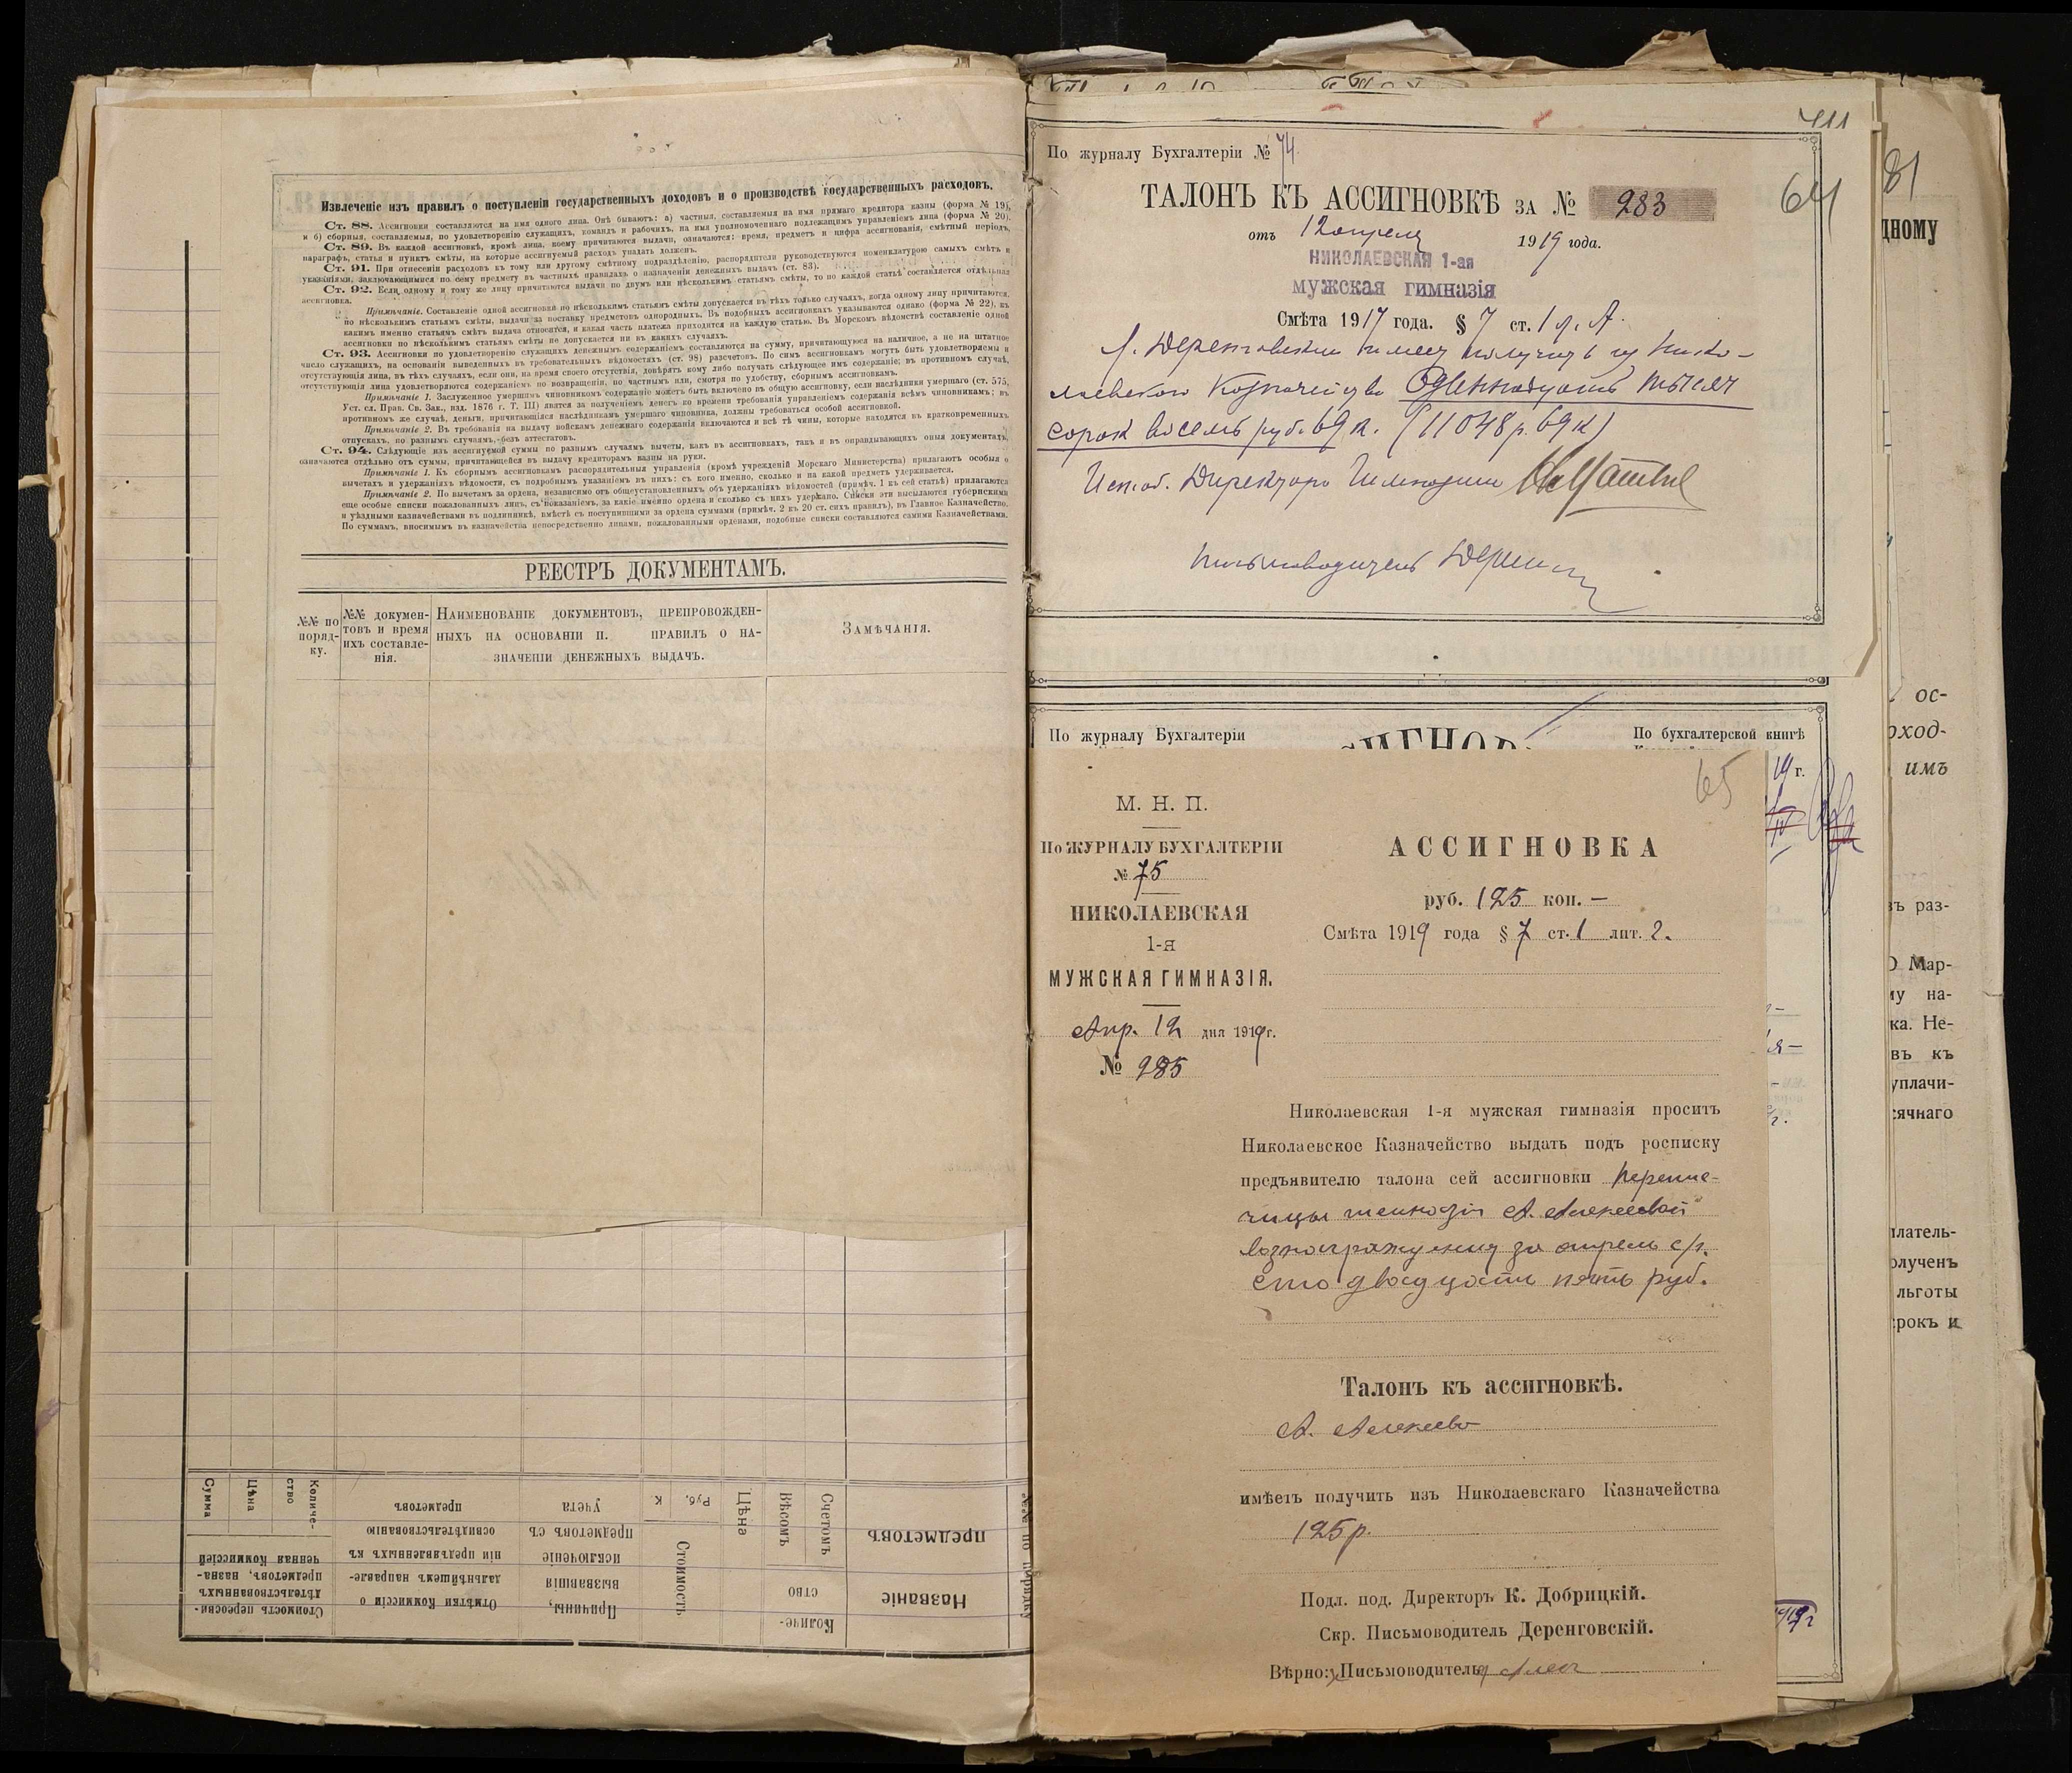 Извлеченіе изъ правилъ о поступленіи государственныхъ доходовъ и о производствѣ государственныхъ расходовъ.
Ст. 88. Ассигновки составляются на имя одного лица. Онѣ бываютъ: а) частныя, составляемыя на имя прямаго кредитора казны (форма № 19),
и б) сборныя, составляемыя, по удовлетворенію служащихъ, командъ и рабочихъ, на имя уполномоченнаго подлежащимъ управленіемъ лица (форма № 20).
Ст. 89. Въ каждой ассигновкѣ, кромѣ лица, коему причитаются выдачи, означаются: время, предметъ и цифра ассигнованія, смѣтный періодъ,
параграфъ, статья и пунктъ смѣты, на которые ассигнуемый расходъ упадать долженъ.
Ст. 91. При отнесеніи расходовъ къ тому или другому смѣтному подраздѣленію, распорядители руководствуются номенклатурою самыхъ смѣтъ и
указаніями, заключающимися по сему предмету въ частныхъ правилахъ о назначеніи денежныхъ выдачъ (ст. 83).
Ст. 92. Если одному и тому же лицу причитаются выдачи по двумъ или нѣсколькимъ статьямъ смѣты, то по каждой статьѣ составляется отдѣльная
ассигновка.
Примѣчаніе. Составленіе одной ассигновки по нѣсколькимъ статьямъ смѣты допускается въ тѣхъ только случаяхъ, когда одному лицу причитаются,
по нѣсколькимъ статьямъ смѣты, выдачи за поставку предметовъ однородныхъ. Въ подобныхъ ассигновкахъ указываются однако (форма № 22), къ
какимъ именно статьямъ смѣтъ выдача относится, и какая часть платежа приходится на каждую статью. Въ Морскомъ вѣдомствѣ составленіе одной
ассигновки по нѣсколькимъ статьямъ смѣты не допускается ни въ какихъ случаяхъ.
Ст. 93. Ассигновки по удовлетворенію служащихъ денежнымъ содержаніемъ составляются на сумму, причитающуюся на наличное, а не на штатное
число служащихъ, на основаніи выведенныхъ въ требовательныхъ вѣдомостяхъ (ст. 98) разсчетовъ. По симъ ассигновкамъ могутъ быть удовлетворяемы и
отсутствующія лица, въ тѣхъ случаяхъ, если они, на время своего отсутствія, довѣрятъ кому либо получать слѣдующее имъ содержаніе; въ противномъ случаѣ,
отсутствующія лица удовлетворяются содержаніемъ по возвращеніи, по частнымъ или, смотря по удобству, сборнымъ ассигновкамъ.
Примѣчаніе 1. Заслуженное умершимъ чиновникомъ содержаніе можетъ быть включено въ общую ассигновку, если наслѣдники умершаго (ст. 575,
Уст. сл. Прав. Св. Зак., изд. 1876 г. Т. III) явятся за полученіемъ денегъ ко времени требованія управленіемъ содержанія всѣмъ чиновникамъ; въ
противномъ же случаѣ, деньги, причитающіяся наслѣдникамъ умершаго чиновника, должны требоваться особой ассигновкой.
Примѣчаніе 2. Въ требованія на выдачу войскамъ денежнаго содержанія включаются и всѣ тѣ чины, которые находятся въ кратковременныхъ
отпускахъ, по разнымъ случаямъ, безъ аттестатовъ.
Ст. 94. Слѣдующіе изъ ассигнуемой суммы по разнымъ случаямъ вычеты, какъ въ ассигновкахъ, такъ и въ оправдывающихъ оныя документахъ,
означаются отдѣльно отъ суммы, причитающейся въ выдачу кредиторамъ казны на руки.
Примѣчаніе 1. Къ сборнымъ ассигновкамъ распорядительныя управленія (кромѣ учрежденій Морскаго Министерства) прилагаютъ особыя о
вычетахъ и удержаніяхъ вѣдомости, съ подробнымъ указаніемъ въ нихъ: съ кого именно, сколько и на какой предметъ удерживается.
Примѣчаніе 2. По вычетамъ за ордена, независимо отъ общеустановленныхъ объ удержаніяхъ вѣдомостей (примѣч. 1 къ сей статьѣ) прилагаются
еще особые списки пожалованныхъ лицъ, съ показаніемъ, за какіе именно ордена и сколько съ нихъ удержано. Списки эти высылаются губернскими
и уѣздными казначействами въ подлинникѣ, вмѣстѣ съ поступившими за ордена суммами (примѣч. 2 къ 20 ст. сихъ правилъ), въ Главное Казначейство.
По суммамъ, вносимымъ въ казначейства непосредственно лицами, пожалованными орденами, подобные списки составляются самими Казначействами.
РЕЕСТРЪ ДОКУМЕНТАМЪ.
№№ по поряд-ку.
№№ докумен-товъ и время ихъ составле-нія.
Наименованіе документовъ, препровожден-
ныхъ на основаніи п. правилъ о на-
значеніи денежныхъ выдачъ.
Замѣчанія.
Названіе предметовъ
Количе-ство
Счетомъ
Вѣсомъ
Цѣна
Стоимость
Руб. К
Причины, вызвавшія исключеніе предметовъ съ учета
Отмѣтки Комиссіи о дальнѣйшемъ направле-ніи предъявленныхъ къ освидѣтельствованію предметовъ
Стоимость пересвидѣтельствованныхъ предметовъ, назна-ченная Комиссіей
Количе-ство
Цѣна
Сумма
411
По журналу Бухгалтеріи № 74
64
ТАЛОНЪ КЪ АССИГНОВКѢ ЗА № 283
отъ 12 апреля 1919 года.
НИКОЛАЕВСКАЯ 1-ая
мужская гимназія
Смѣта 1917 года. § 7 ст. 1 л. А.
Г. Деренговский имеет получить из Нико-
лаевского Казначейства Одиннадцать тысяч
сорок восемь руб. 69 к. (11048 р. 69 к)
Исп. об. Директора Гимназии
письмоводитель
По журналу Бухгалтеріи
По бухгалтерской книгѣ
19 г.
65
М. Н. П.
По ЖУРНАЛУ БУХГАЛТЕРІИ
№ 75
НИКОЛАЕВСКАЯ
1-я
МУЖСКАЯ ГИМНАЗІЯ.
Апр. 12 дня 1919 г.
№ 285
АССИГНОВКА
руб. 125 коп. —
Смѣта 1919 года § 7 ст. 1 лит. 2.
Николаевская 1-я мужская гимназія проситъ
Николаевское Казначейство выдать подъ росписку
предъявителю талона сей ассигновки перепис-
чицы гимназіи А. Алексеевой
вознаграждения за апрель с/г.
сто двадцать пять руб.
Талонъ къ ассигновкѣ.
А. Алексеева
имѣетъ получить изъ Николаевскаго Казначейства
125 р.
Подл. под. Директоръ К. Добрицкій.
Скр. Письмоводитель Деренговскій.
Вѣрно: Письмоводитель
81
дному
ос-
оход-
имъ
ъ раз-
Мар-
му на-
ка. Не-
въ къ
уплачи-
сячнаго
платель-
олученъ
льготы
срокъ и